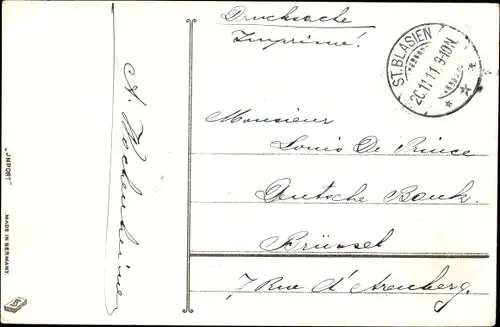 Drucksache
Imprimé!
ST. BLASIEN
20.11.11. 9-10N.
Monsieur
Louis De Prince
Deutsche Bank.
Brüssel
7 Rue d'Arenberg.
A.
"IMPORT"
MADE IN GERMANY.